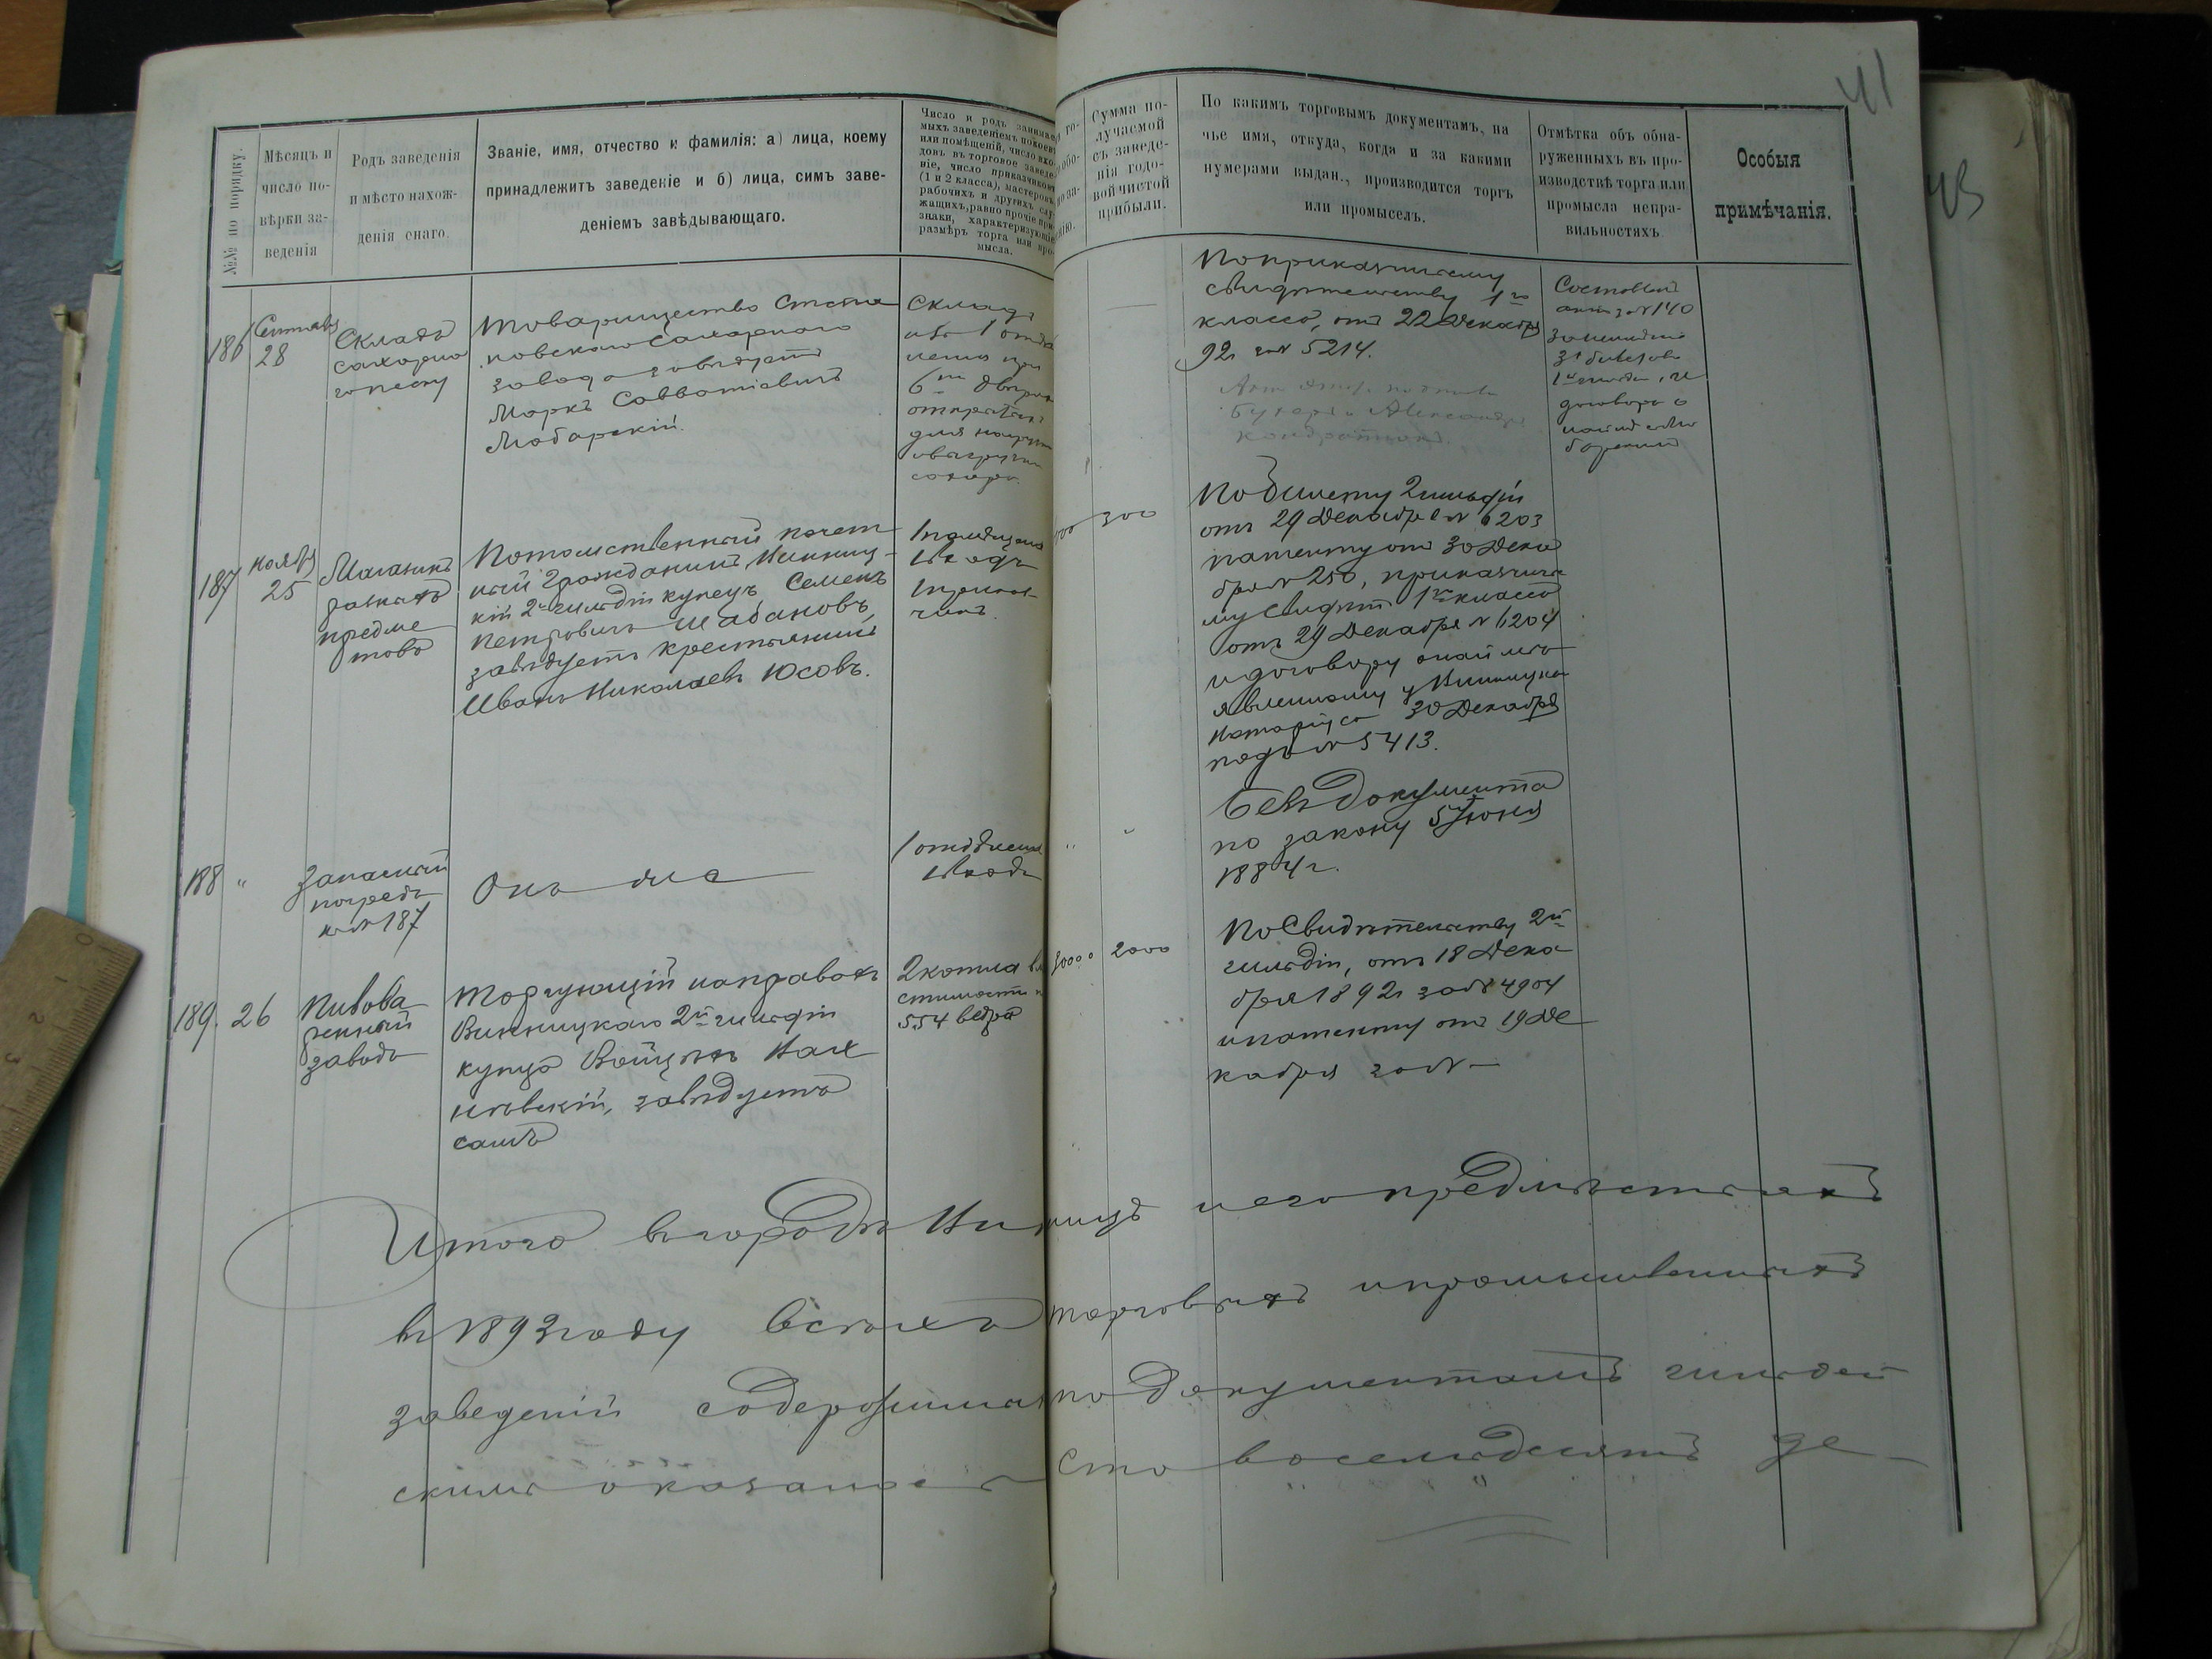 41
43
№№ по порядку.
Мѣсяцъ и
число по-
вѣрки за-
веденія
Родъ заведенія
и мѣсто нахож-
денія онаго.
Званіе, имя, отчество и фамилія: а) лица, коему
принадлежитъ заведеніе и б) лица, симъ заве-
деніемъ завѣдывающаго.
Число и родъ занимае
мыхъ заведеніемъ покоевъ
или помѣщеній, число вхо-
довъ въ торговое заведе-
ніе, число приказчиковъ
(1 и 2 класса), мастеровъ,
рабочихъ и другихъ слу-
жащихъ, равно прочіе при-
знаки, характеризующіе
размѣръ торга или про-
мысла.
Сумма по-
лучаемой
съ заведе-
нія годо-
вой чистой
прибыли.
По какимъ торговымъ документамъ, на
чье имя, откуда, когда и за какими
нумерами выдан., производится торгъ
или промыселъ.
Отмѣтка объ обна-
руженныхъ въ про-
изводствѣ торга или
промысла непра-
вильностяхъ.
Особыя
примѣчанія.
186
Сентября
28
Складъ
сахарна
го песку
Товарищество Степа
новскаго Сахарнаго
завода завѣдуетъ
Маркъ Савватіевичъ
Мобарскій.
Складъ
изъ 1 отдѣ
ленія при
6
для нагрузки
и выгрузки
сахара.
По приказчичьему
свидѣтельству 1го
класса, отъ 22 Декабря
92г за № 5214.
Составленъ
актъ за № 140
187
Ноября
25
Магазинъ
разныхъ
предме
товъ
Потомственный почет
ный Гражданинъ Винниц-
кій 2й гильдіи купецъ Семенъ
Петровичъ Шабановъ,
завѣдуетъ крестьянинъ
Иванъ Николаевъ Юсовъ.
1 помѣщеніе
1 входъ
1 приказ-
чикъ.
300
По билету 2 гильдіи
отъ 29 Декабря № 6203
патенту отъ 30 Дека
бря № 250, приказчичье
му Свидѣт. 1го класса
отъ 29 Декабря № 6204
и договору о найме
явленному у Винницкаго
Нотаріуса 30 Декабря
подъ № 5413.
188 "
Запасный
погребъ
къ № 187
Онъ же
1 отдѣленіе
1 входъ
Безъ документа
по закону 5 Іюня
1884 г.
189. 26
Пивова
ренный
заводъ
Торгующій на правахъ
Винницкаго 2й гильдіи
купца Войцѣхъ Нах
завѣдуетъ
самъ
2 котла вм
стимостью
554 ведра
2000
По Свидѣтельству 2й
гильдіи, отъ 18 Дека
бря 1892г за № 4904
и патенту отъ 19 Де
кабря за № —
Итого въ городѣ Винницѣ и его предмѣстьяхъ
въ 1893 году всѣхъ торговыхъ и промышленныхъ
заведеній содержимыхъ по документамъ гильдей
скимъ оказалось сто восемьдесятъ де-